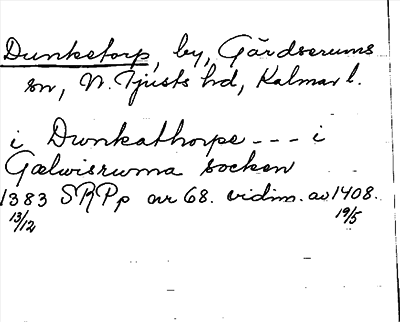 Dunketorp, by, Gärdserums
sn, N. Tjusts hd, Kalmar l.
i Dwnkathorpe --- i
Gælwisrwma socken
1383 SRPp nr 68. vidim. av 1408.
13/12 19/5